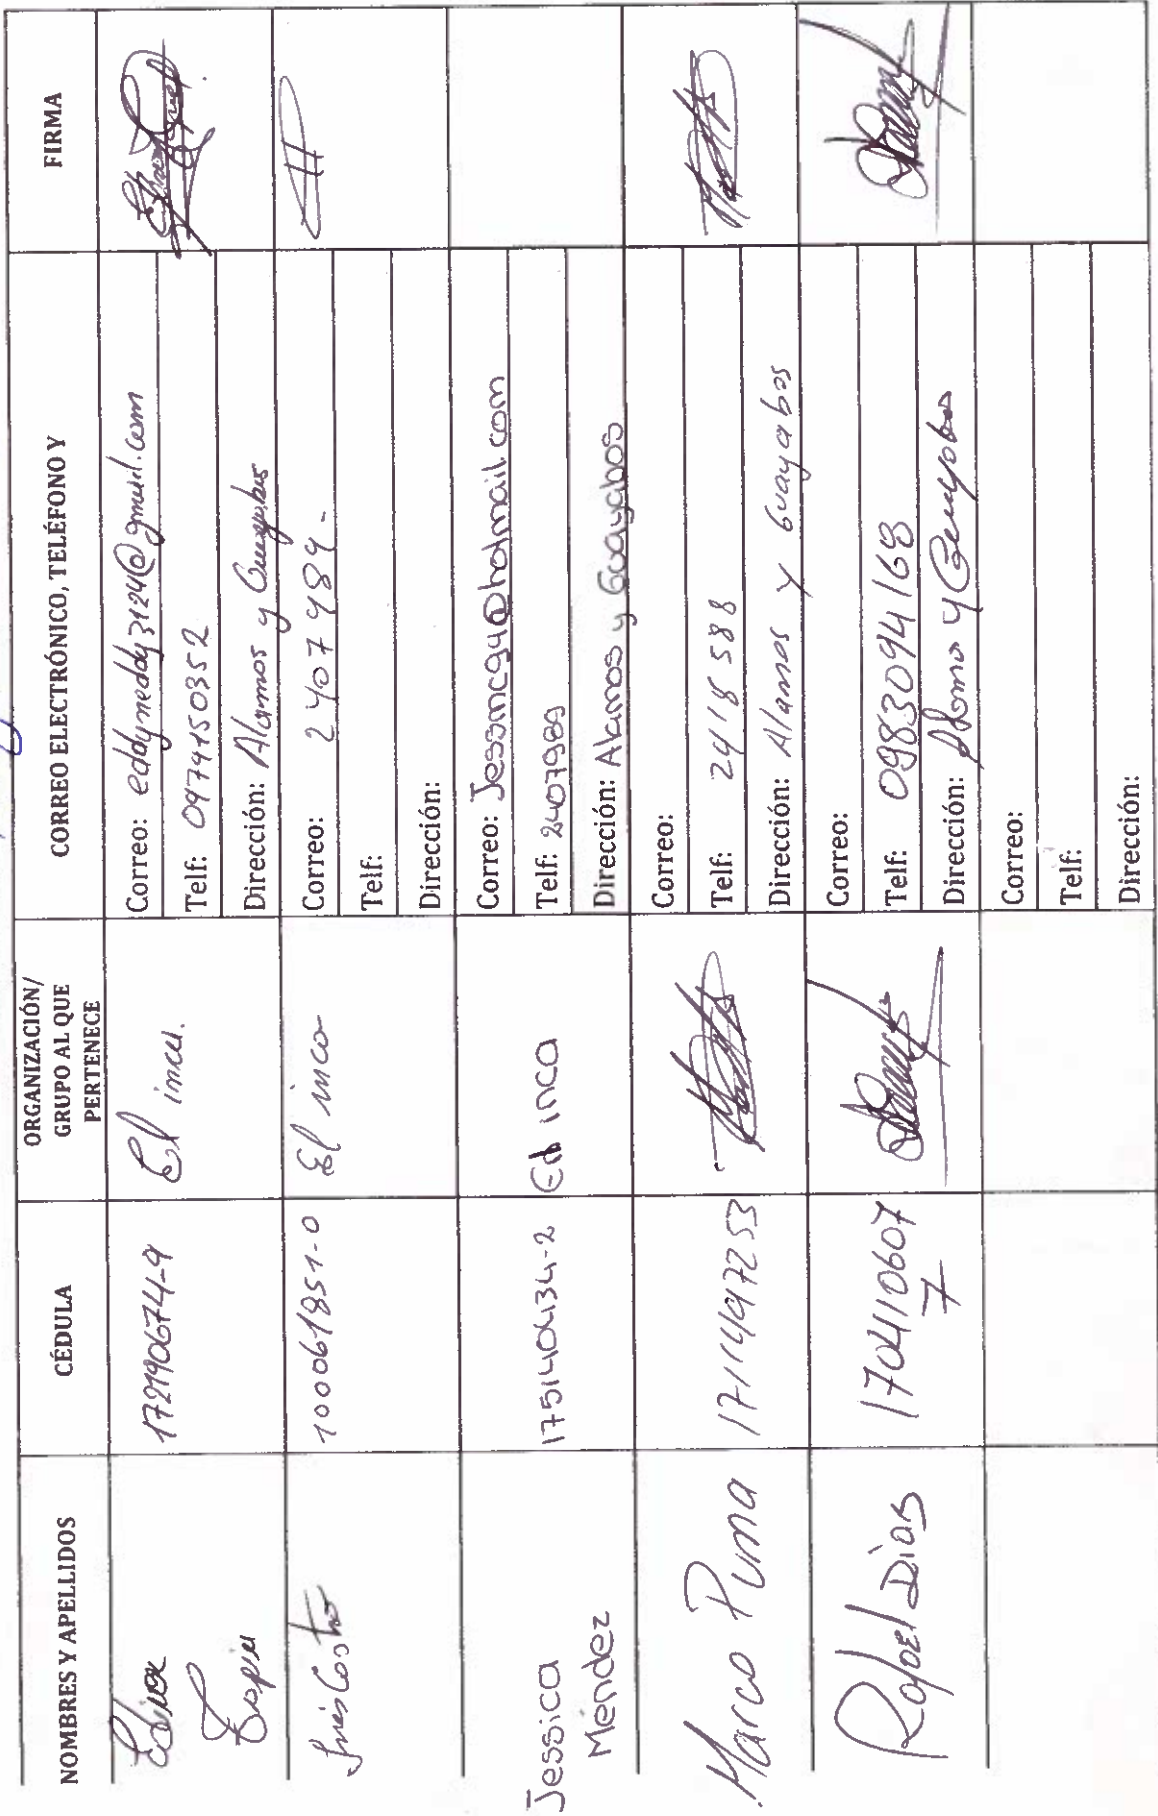 NOMBRES Y APELLIDOS
CÉDULA
ORGANIZACIÓN/
GRUPO AL QUE
PERTENECE
CORREO ELECTRÓNICO, TELÉFONO Y
FIRMA
172190674-9
El inca.
Correo: eddyneddy3124@gmail.com
Telf: 0974150352
Dirección: Alamos y Guayabos
100061851-0
El inca
Correo: 2407989-
Telf:
Dirección:
Jessica
Méndez
175140434-2
El inca
Correo: Jessmcg4@hotmail.com
Telf: 2407989
Dirección: Alamos y Guayabos
Marco Puma
1711497253
Correo:
Telf: 2418588
Dirección: Alamos y Guayabos
Rafael Dias
170410607
7
Correo:
Telf: 0983094168
Dirección: Alamo y Guayabos
Correo:
Telf:
Dirección: